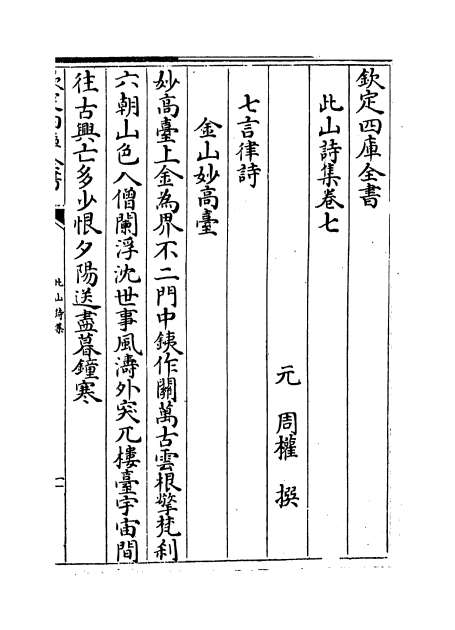 欽定四庫全書
此山詩集卷七
元 周權 撰
七言律詩
金山妙高臺
妙高臺上金為界不二門中鐵作關萬古雲根擎梵刹
六朝山色入僧闌浮沈世事風濤外突兀樓臺宇宙間
往古興亡多少恨夕陽送盡暮鐘寒
欽定四庫全書
此山詩集
一